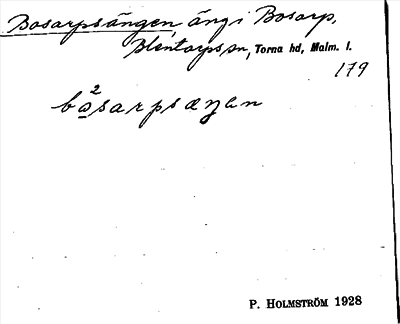 Bosarpsängen, äng i Bosarp,
Blentarps sn, Torna hd, Malm. l.
179
bo²sarpsæŋen
P. HOLMSTRÖM 1928